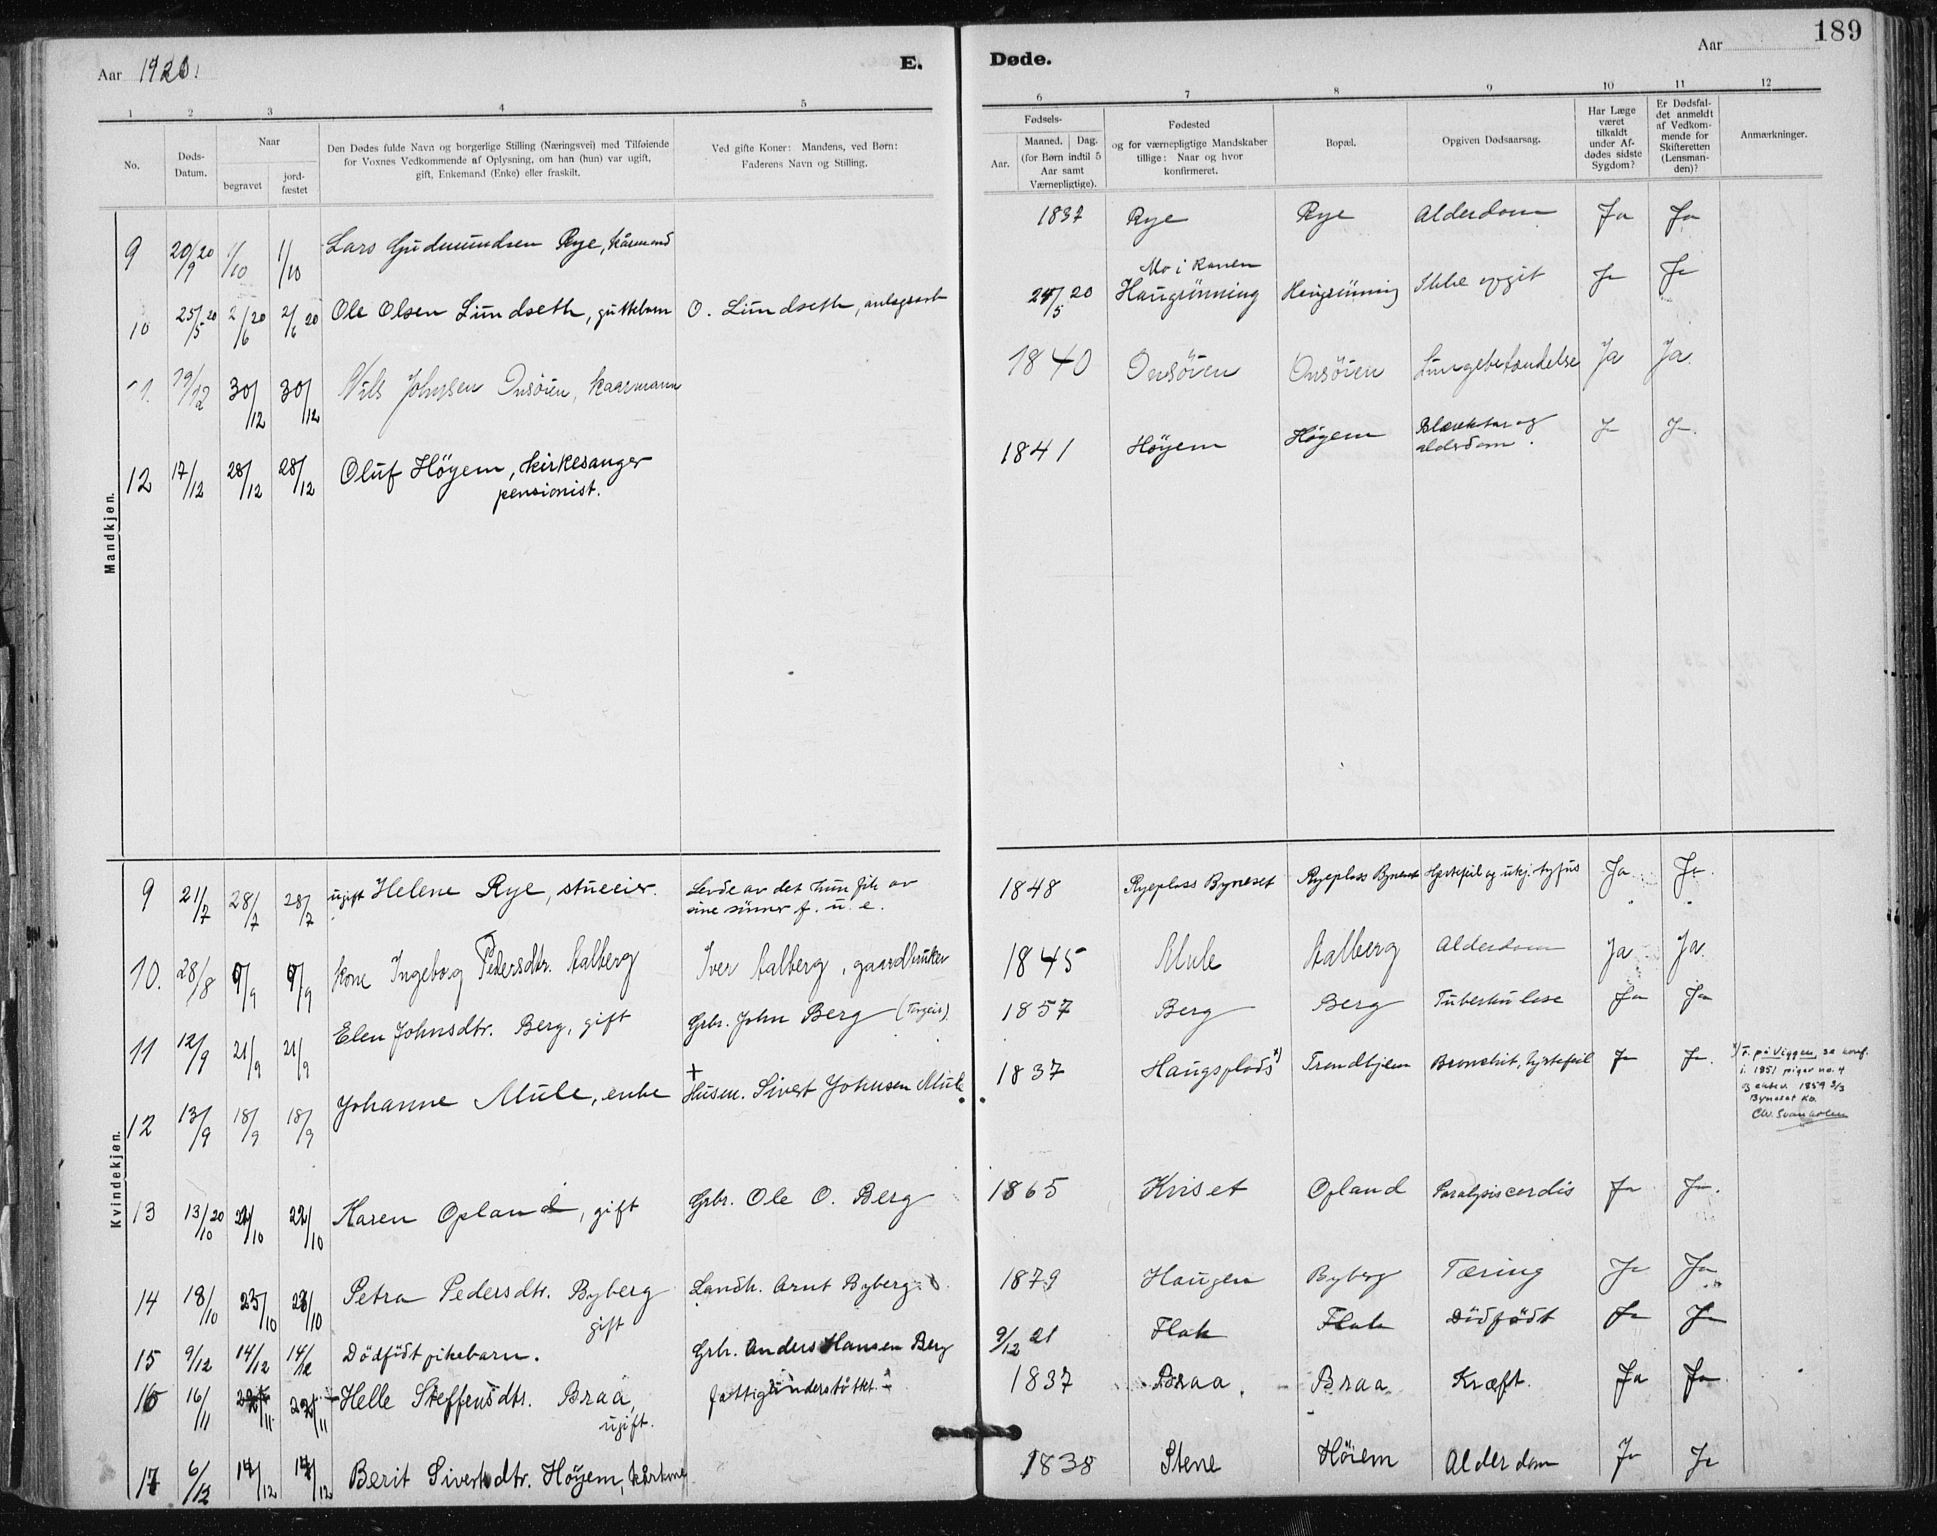 Aar 1920.
E. Døde.
Aar
189
1 2 3 4 5 6 7 8 9 10 11 12
No.
Døds-Datum.
Naar
begravet
jord-fæstet
Den Dødes fulde Navn og borgerlige Stilling (Næringsvei) med Tilføiende
for Voxnes Vedkommende af Oplysning, om han (hun) var ugift,
gift, Enkemand (Enke) eller fraskilt.
Ved gifte Koner: Mandens, ved Børn:
Faderens Navn og Stilling.
Fødsels-
Aar.
Maaned. Dag.
(for Børn indtil 5
Aar samt
Værnepligtige).
Fødested
og for værnepligtige Mandskaber
tillige: Naar og hvor
konfirmeret.
Bopæl.
Opgiven Dødsaarsag.
Har Læge
været
tilkaldt
under Af-
dødes sidste
Sygdom?
Er Dødsfal-
det anmeldt
af Vedkom-
mende for
Skifteretten
(Lensman-
den)?
Anmærkninger.
Mandkjøn.
9 20/9 20 1/10 1/10 Lars Gudmundsen Rye, kårmand 1837 Rye Rye Alderdom Ja Ja
10 25/5 20 2/6 20 2/6 20 Ole Olsen Lundseth, guttebarn O. Lundseth, anlægsarb 24/5 20 Mo i Ranen Haugrünning Haugrünning Ikke opgit Ja Ja
11. 19/12 30/12 30/12 Nils Johnsen Onsöien, kaarmann 1840 Onsöien Onsöien Lungebetændelse Ja Ja.
12 17/12 28/12 28/12 Oluf Höyem, kirkesanger
pensionist. 1841 Höyem Höyem Blærekatar og
alderdom. Ja Ja.
Kvindekjøn.
9 21/7 28/7 28/7 ugift Helene Rye, stueeier. Levde av det hun fik av
sine sönner f. u. e. 1848 Ryeplass Byneset Ryeplass Byneset Hjertefeil og tyfus Ja Ja.
10. 28/8 9/9 9/9 kone Ingeborg Pedersdtr. Aalberg Iver Aalberg, gaardbruker 1845 Mule Aalberg Alderdom Ja Ja.
11 12/9 21/9 21/9 Elen Johnsdtr. Berg, gift Grbr. John Berg 1857 Berg Berg Tuberkulose Ja Ja
12 13/9 18/9 18/9 Johanne Mule, enke + Husm. Sivert Johnsen Mule 1837 Haugsplads x) Trondhjem Bronchit, hjertefeil Ja Ja.
x) F. på Viggen, se konf.
i. 1851 piger no. 4
og ektev. 1859 3/3
Byneset kb.
13 13/10 20 22/10 22/10 Karen Opland, gift Grbr. Ole O. Berg 1865 Kviset Opland Paralysis cordis Ja Ja.
14 18/10 23/10 23/10 Petra Pedersdtr. Byberg
gift Landh. Arnt Byberg. 1879 Haugen Byberg Tæring Ja Ja
15 9/12 14/12 14/12 Dödfödt pikebarn. Grbr. Anders Hansen Berg 9/12 21 Flak Flak Dödfödt Ja Ja
16 16/11 22/11 22/11 Helle Steffensdtr. Braa,
ugift. fattigünderstöttet 1837 Braa Braa Kræft. Ja Ja
17 6/12 14/12 14/12 Berit Sivertsdtr. Höyem, kårkone 1838 Stene Höiem Alderdom Ja Ja